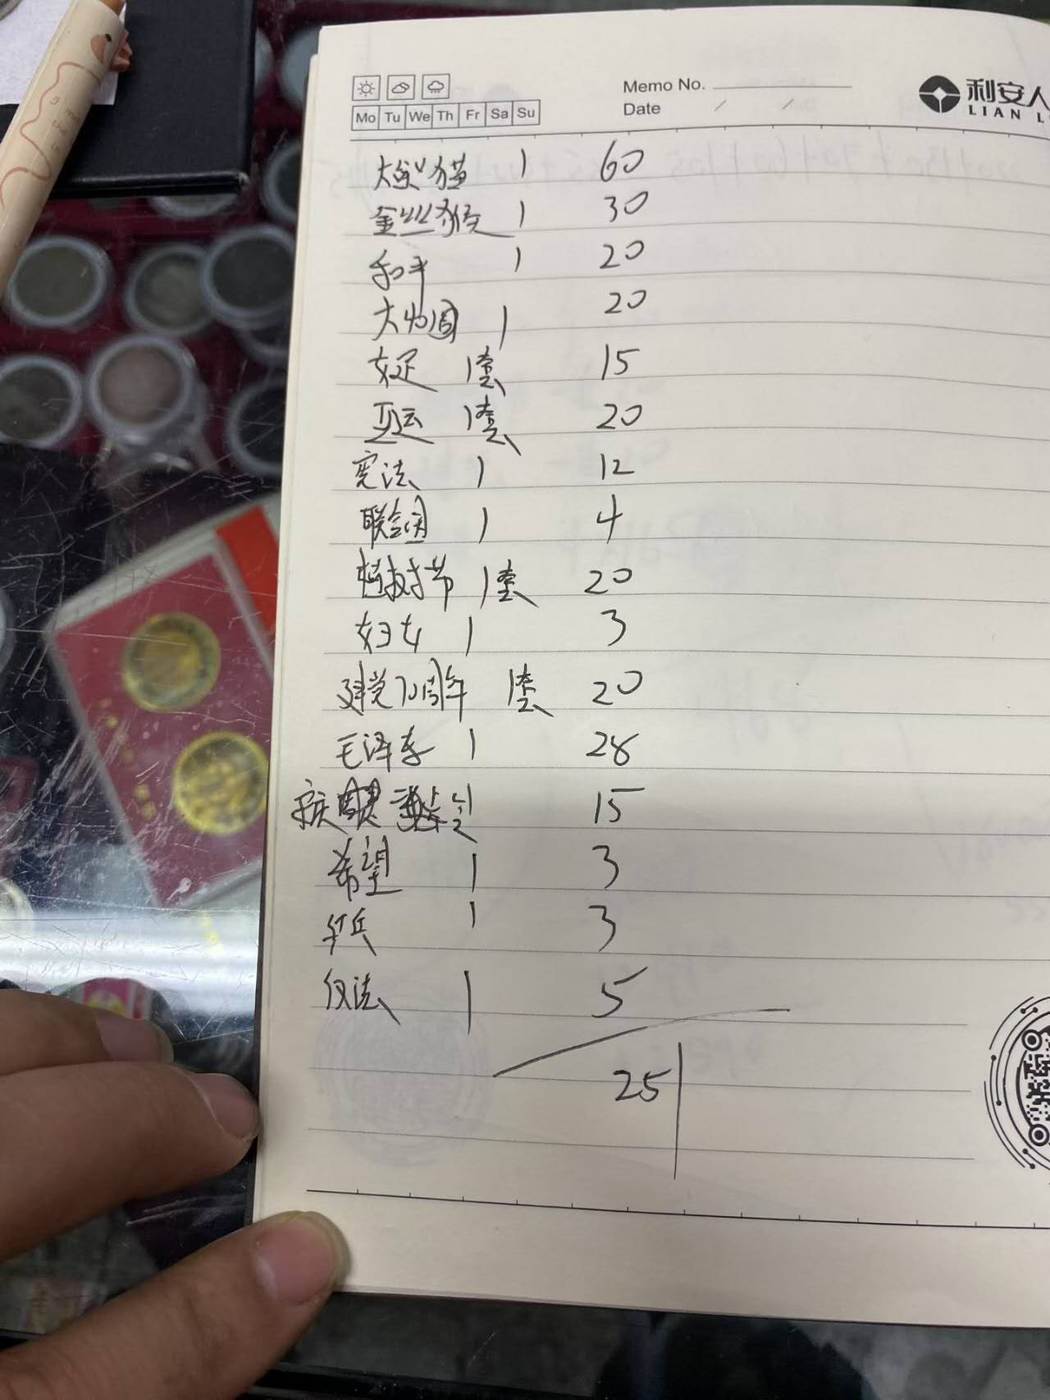 Memo No.
Date / /
利安人
LIAN L
Mo Tu We Th Fr Sa Su
大熊猫 1 60
金丝猴 1 30
和平 1 20
大加国 1 20
女足 1套 15
亚运 1套 20
宪法 1 12
联合国 1 4
植树节 1套 20
妇女 1 3
建党70周年 1套 20
毛泽东 1 28
15
希望 1 3
1 3
1 5
251